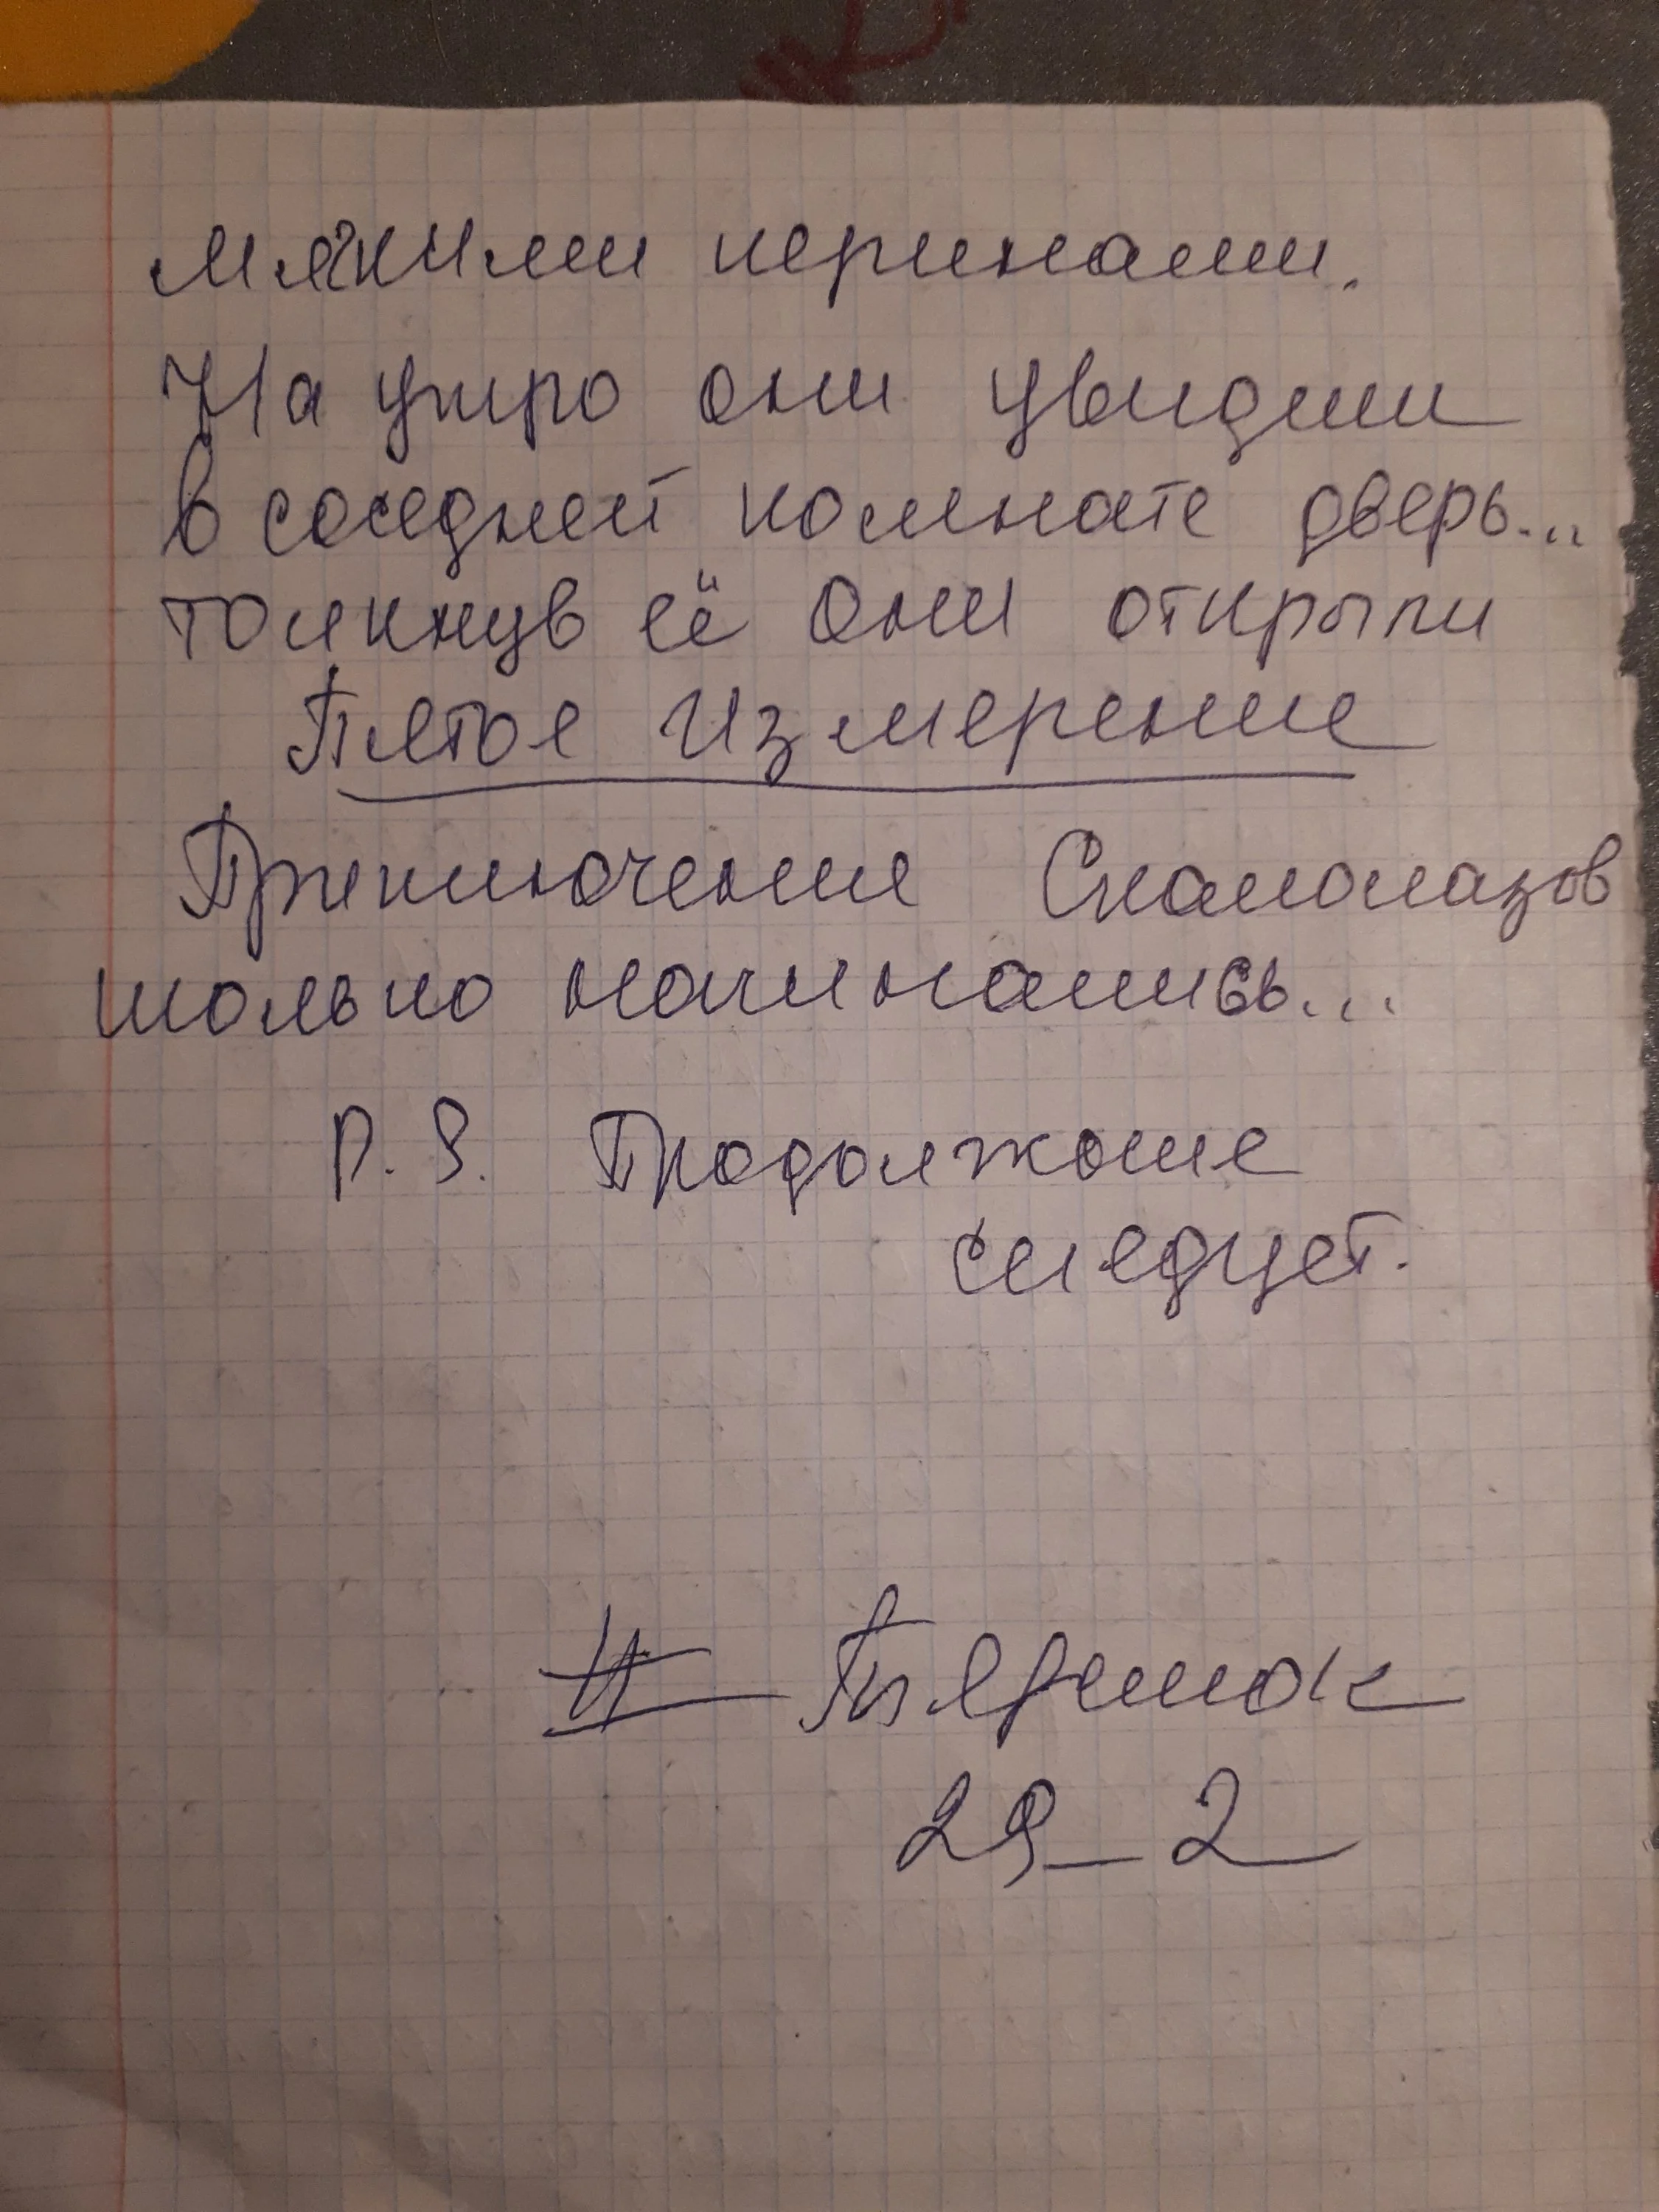 мягкими перинами.
На утро они увидели
в соседней комнате дверь...
толкнув её они открыли
Пятое Измерение
Приключение Скалолазов
только начинались...
P. S. Продолжение
следует.
#
29_2